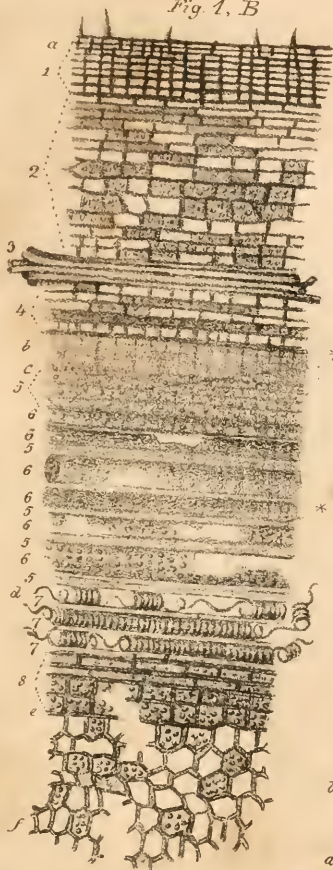 Fig. 1, B
a
1
2
3
4
b
c
5
6
6
5
6
6
5
6
5
6
5
d
7
7
7
8
e
f
a